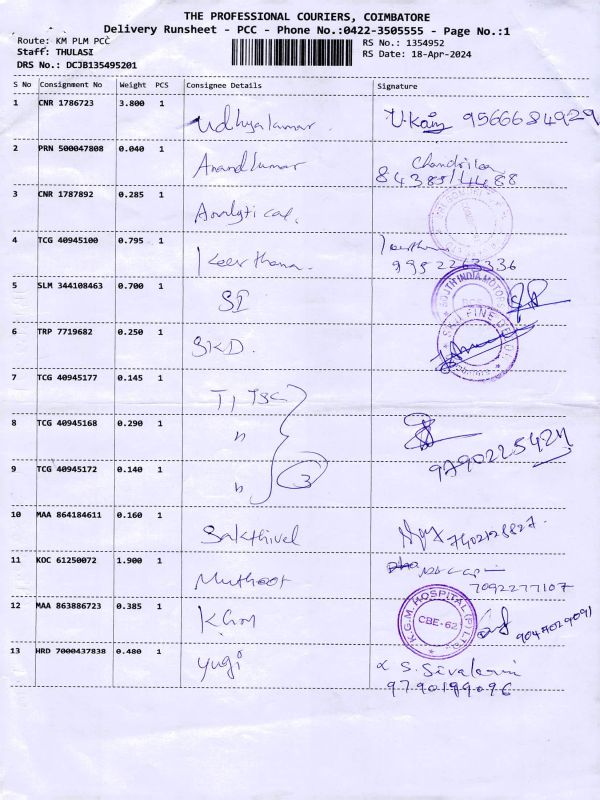 THE PROFESSIONAL COURIERS, COIMBATORE
Delivery Runsheet - PCC - Phone No.:0422-3505555 - Page No.:1
Route: KM PLM PCC
RS No.: 1354952
Staff: THULASI
RS Date: 18-Apr-2024
DRS No.: DCJB135495201
S No Consignment No Weight PCS Consignee Details Signature
1 CNR 1786723 3.800 1 Udhyakumar. U.Kaing 9566684929
2 PRN 500047808 0.040 1 Anandkumar
3 CNR 1787892 0.285 1 Analytical.
4 TCG 40945100 0.795 1 Keerthana. Keerthana
9952263336
5 SLM 344108463 0.700 1 SI SOUTH INDIA MOTOR
6 TRP 7719682 0.250 1 SKD.
7 TCG 40945177 0.145 1
8 TCG 40945168 0.290 1 n 9790225424
9 TCG 40945172 0.140 1 n 3
10 MAA 864184611 0.160 1 Sakthivel 7402128827.
11 KOC 61250072 1.900 1 Muthoot
7092277107
12 MAA 863886723 0.385 1 K.G.M. HOSPITAL (P) LTD. CBE-62 9047029091
13 HRD 7000437838 0.480 1 Yugi
9790199096